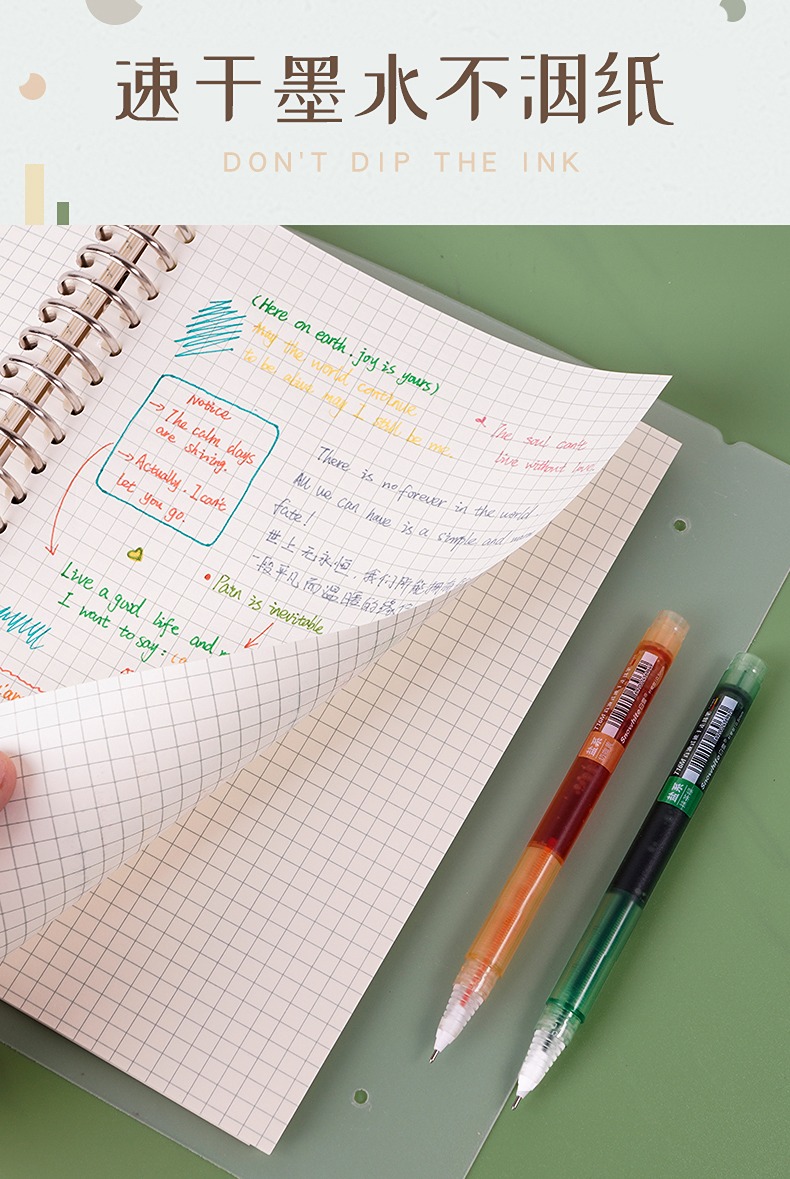 速干墨水不洇纸
DON'T DIP THE INK
(Here on earth. joy is yours)
May the world continue
to be alive may I still be me.
Notice
→ The calm days
are shining.
→ Actually. I can't
let you go.
The soul can't
live without love.
There is no forever in the world
All we can have is a simple and
fate!
世上无永恒，我们所能拥有的
一段平凡而温暖的缘
Live a good life and
I want to say:
Pain is inevitable
盐系
Snowhite白雪
T16M
盐系
Snowhite白雪
T16M